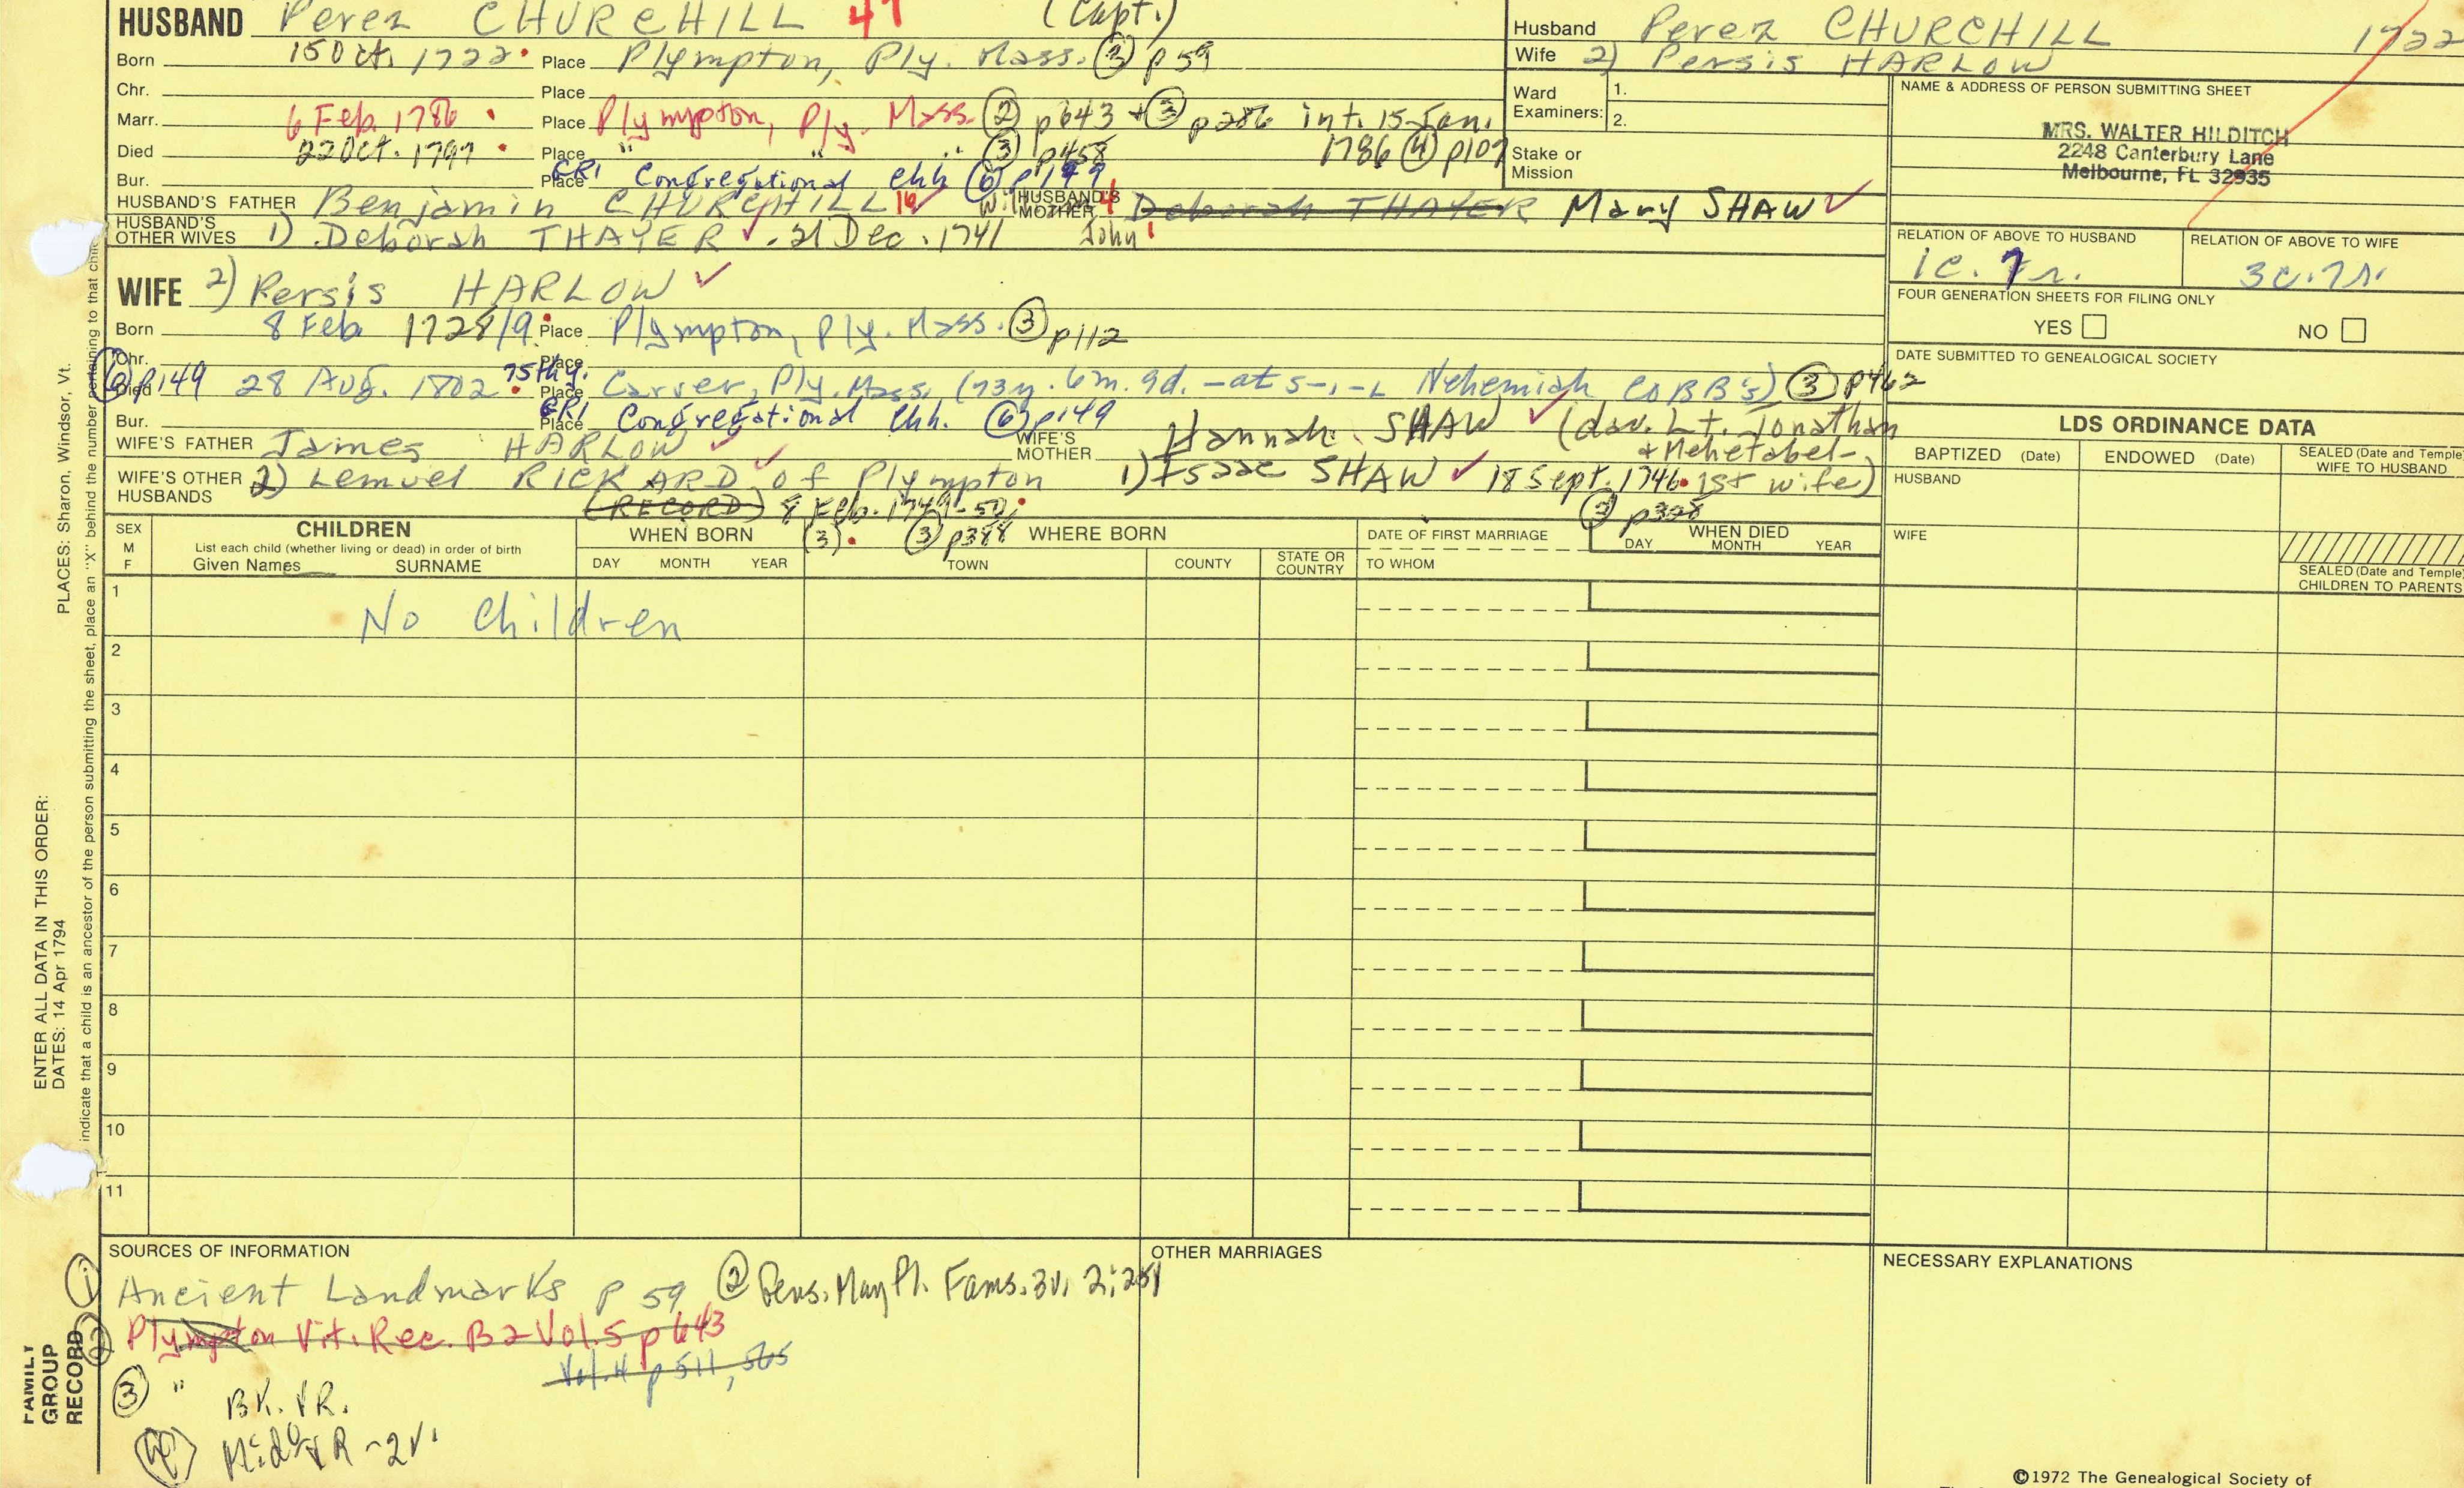 HUSBAND Perez CHURCHILL 47 (Capt.)
Born 15 Oct. 1722 Place Plympton, Ply. Mass. (3) p59
Chr. Place
Marr. 6 Feb. 1786 Place Plympton, Ply. Mass. (2) p643 + (3) p286 int. 15 Jan. 1786 (4) p107
Died 22 Oct. 1797 Place " " " (3) p458
Bur. Place GR1 Congregational Chh (6) p149
HUSBAND'S FATHER Benjamin CHURCHILL 16 HUSBAND'S MOTHER Deborah THAYER Mary SHAW
HUSBAND'S OTHER WIVES 1) Deborah THAYER 21 Dec. 1741 John
Husband Perez CHURCHILL 1722
Wife 2) Persis HARLOW
Ward Examiners: 1.
2.
Stake or Mission
NAME & ADDRESS OF PERSON SUBMITTING SHEET
MRS. WALTER HILDITCH
2248 Canterbury Lane
Melbourne, FL 32935
RELATION OF ABOVE TO HUSBAND RELATION OF ABOVE TO WIFE
1c. 7r. 3c. 7r.
FOUR GENERATION SHEETS FOR FILING ONLY
YES NO
DATE SUBMITTED TO GENEALOGICAL SOCIETY
WIFE 2) Persis HARLOW
Born 8 Feb 1728/9 Place Plympton, Ply. Mass. (3) p112
Chr. Place
(6) p149 Died 28 Aug. 1802 75thy. Place Carver, Ply. Mass. (73y. 6m. 9d. -at s-i-L Nehemiah COBB's) (3) p462
Bur. Place GR1 Congregational Chh. (6) p149
WIFE'S FATHER James HARLOW WIFE'S MOTHER Hannah SHAW (dau. Lt. Jonathan + Mehetabel- 1st wife)
WIFE'S OTHER HUSBANDS 2) Lemuel RICKARD of Plympton 1) Isaac SHAW 18 Sept. 1746
(RECORD) 8 Feb. 1749-50 (3) p388
LDS ORDINANCE DATA
BAPTIZED (Date) ENDOWED (Date) SEALED (Date and Temple) WIFE TO HUSBAND
HUSBAND
WIFE
SEALED (Date and Temple) CHILDREN TO PARENTS
SEX M F CHILDREN
List each child (whether living or dead) in order of birth
Given Names SURNAME
WHEN BORN (3)
DAY MONTH YEAR
WHERE BORN
TOWN COUNTY STATE OR COUNTRY
DATE OF FIRST MARRIAGE
TO WHOM
WHEN DIED
DAY MONTH YEAR
1 No Children
2
3
4
5
6
7
8
9
10
11
SOURCES OF INFORMATION
(1) Ancient Landmarks p 59 (2) Gens. May Fl. Fams. 3v. 2:251
(2) Plympton Vit. Rec. B2 Vol. 5 p 643
Vol. 4 p 511, 565
(3) " BK. VR.
(4) Mid° VR - 2v.
OTHER MARRIAGES
NECESSARY EXPLANATIONS
©1972 The Genealogical Society of
PLACES: Sharon, Windsor, Vt.
ENTER ALL DATA IN THIS ORDER:
DATES: 14 Apr 1794
indicate that a child is an ancestor of the person submitting the sheet, place an "X" behind the number pertaining to that child
FAMILY GROUP RECORD